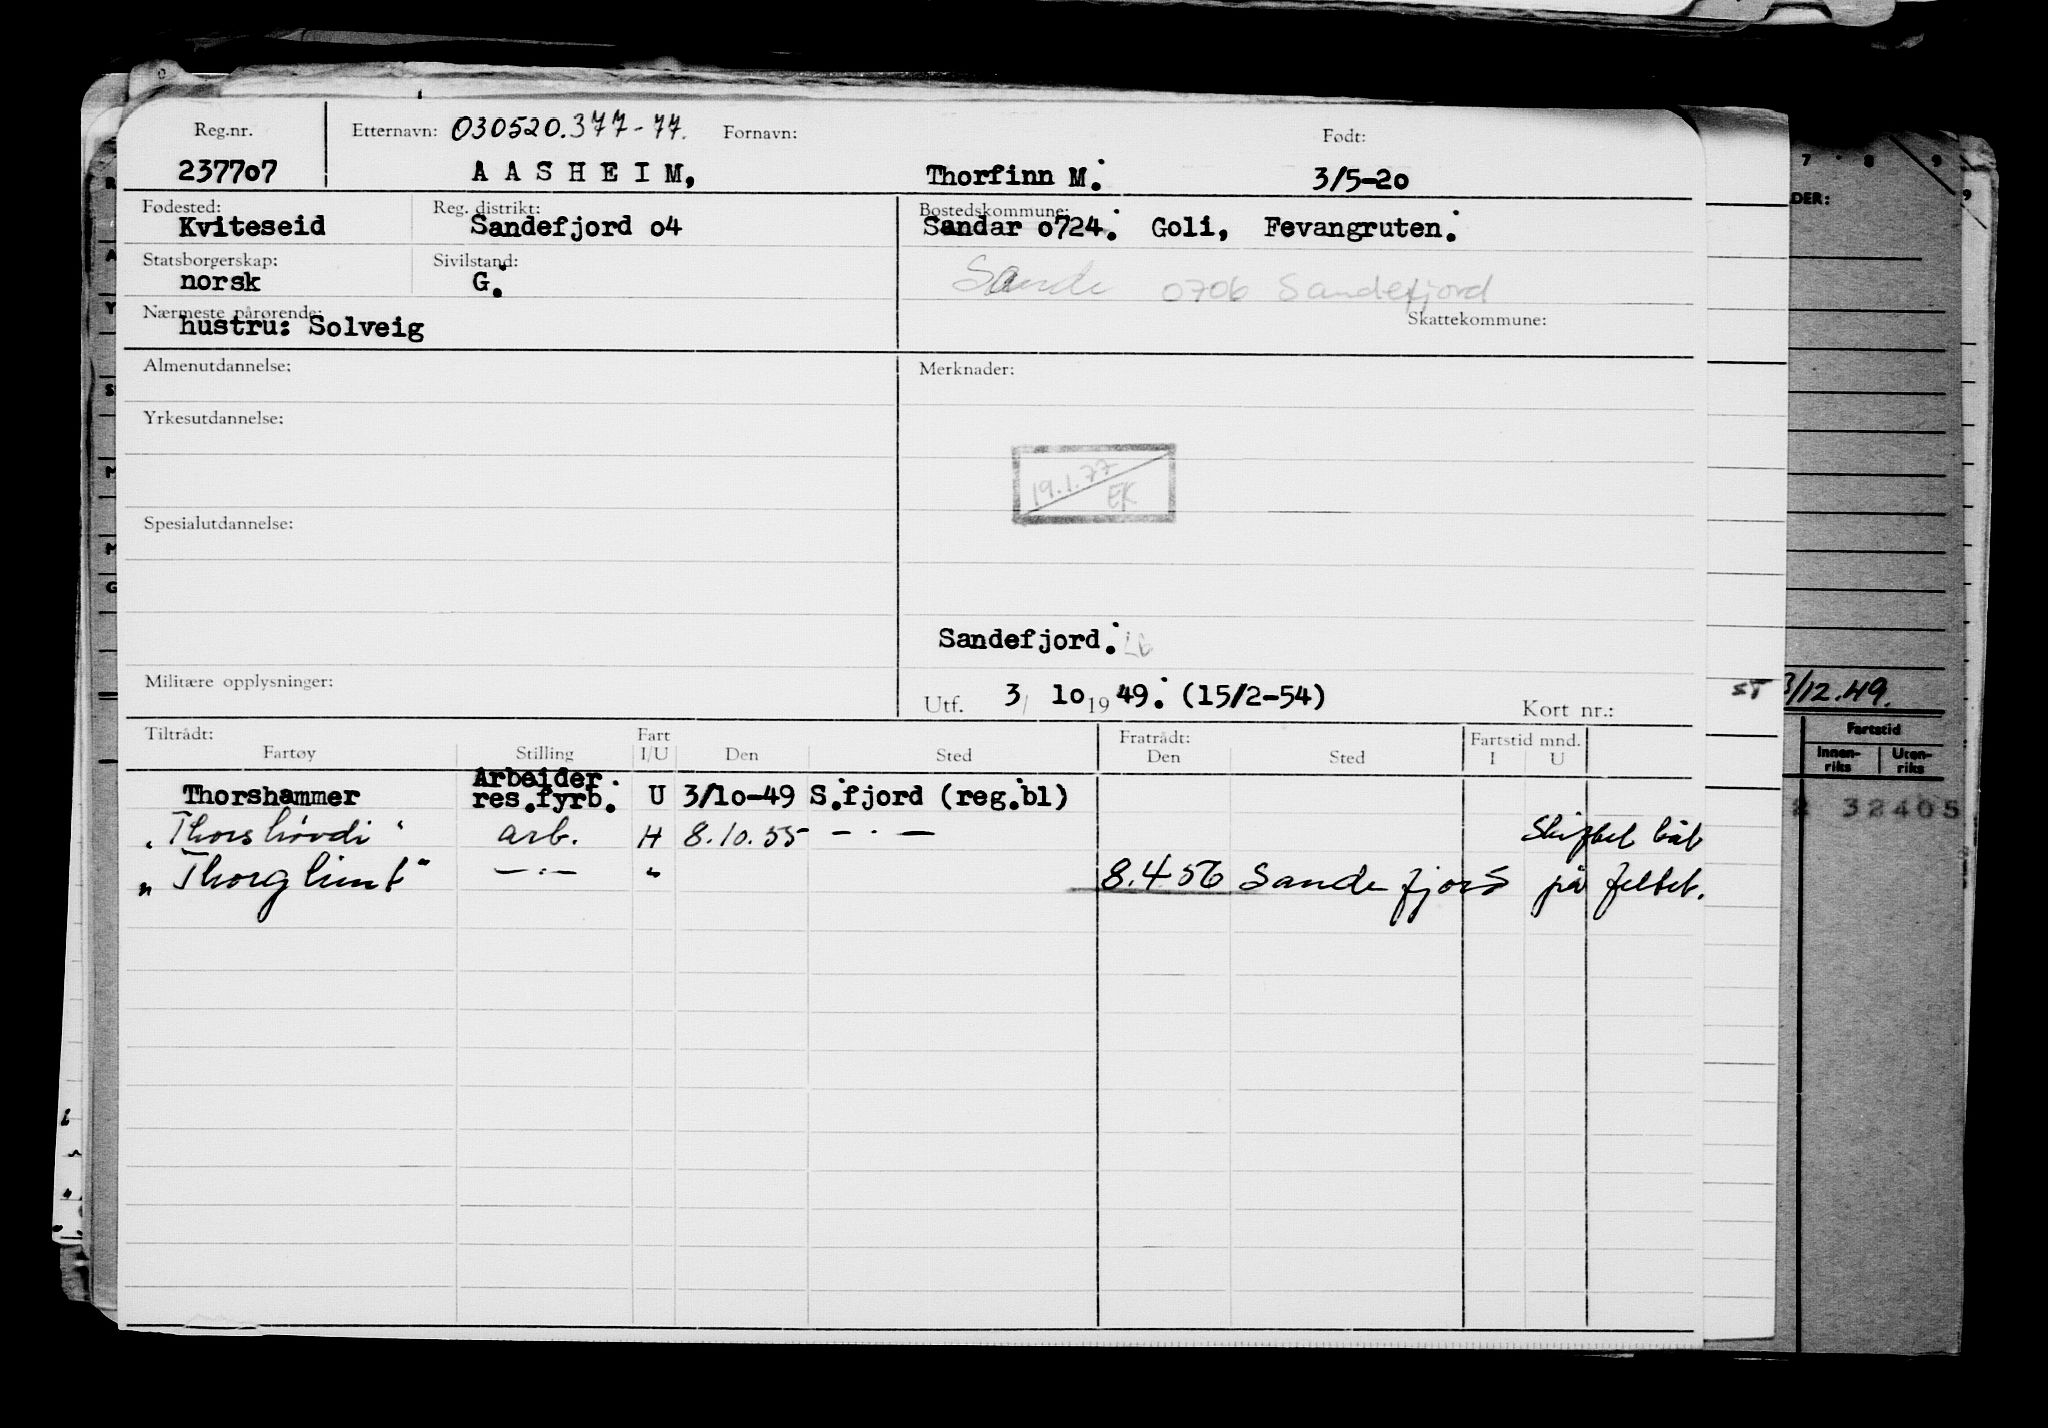 Reg.nr. Etternavn: 030520.377-77. Fornavn: Født:
237707 AASHEIM, Thorfinn M. 3/5-20
Fødested: Reg. distrikt: Bostedskommune:
Kviteseid Sandefjord o4 Sandar o724. Goli, Fevangruten.
Statsborgerskap: Sivilstand:
norsk G. Sande 0706 Sandefjord
Nærmeste pårørende: Skattekommune:
hustru: Solveig
Almenutdannelse: Merknader:
Yrkesutdannelse:
19.1.77
EK
Spesialutdannelse:
Sandefjord.
Militære opplysninger:
Utf. 3/ 1o 19 49. (15/2-54) Kort nr.:
Tiltrådt: Fart Fratrådt: Fartstid mnd.
Fartøy Stilling I/U Den Sted Den Sted I U
Arbeider.
Thorshammer res.fyrb. U 3/1o-49 S.fjord (reg.bl)
"Thorshövdi" arb. H 8.10.55 -·- Skiftet båt
"Thorglimt" -·- " 8.4 56 Sandefjord på feltet.
7 8 9
DER:
ST 3/12.49.
Fartstid
Innen-riks Uten-riks
2 32405